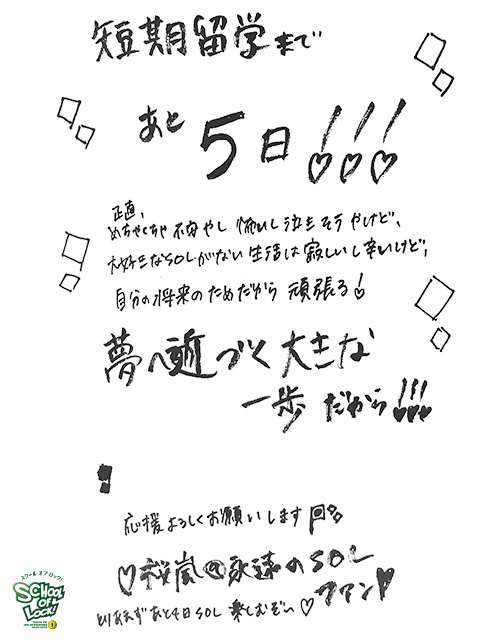 短期留学まで
あと5日!!!
正直、
めちゃくちゃ不安やし 怖いし泣きそうやけど、
大好きなSOLがない生活は寂しいし辛いけど、
自分の将来のためだから 頑張る!
夢へ近づく大きな
一歩 だから!!!
応援よろしくお願いします
♡桜嵐@永遠のSOL
ファン♡
とりあえずあと4日SOL 楽しむぞい♡
スクール オブ ロック!
SCHOOL
OF
LOCK!